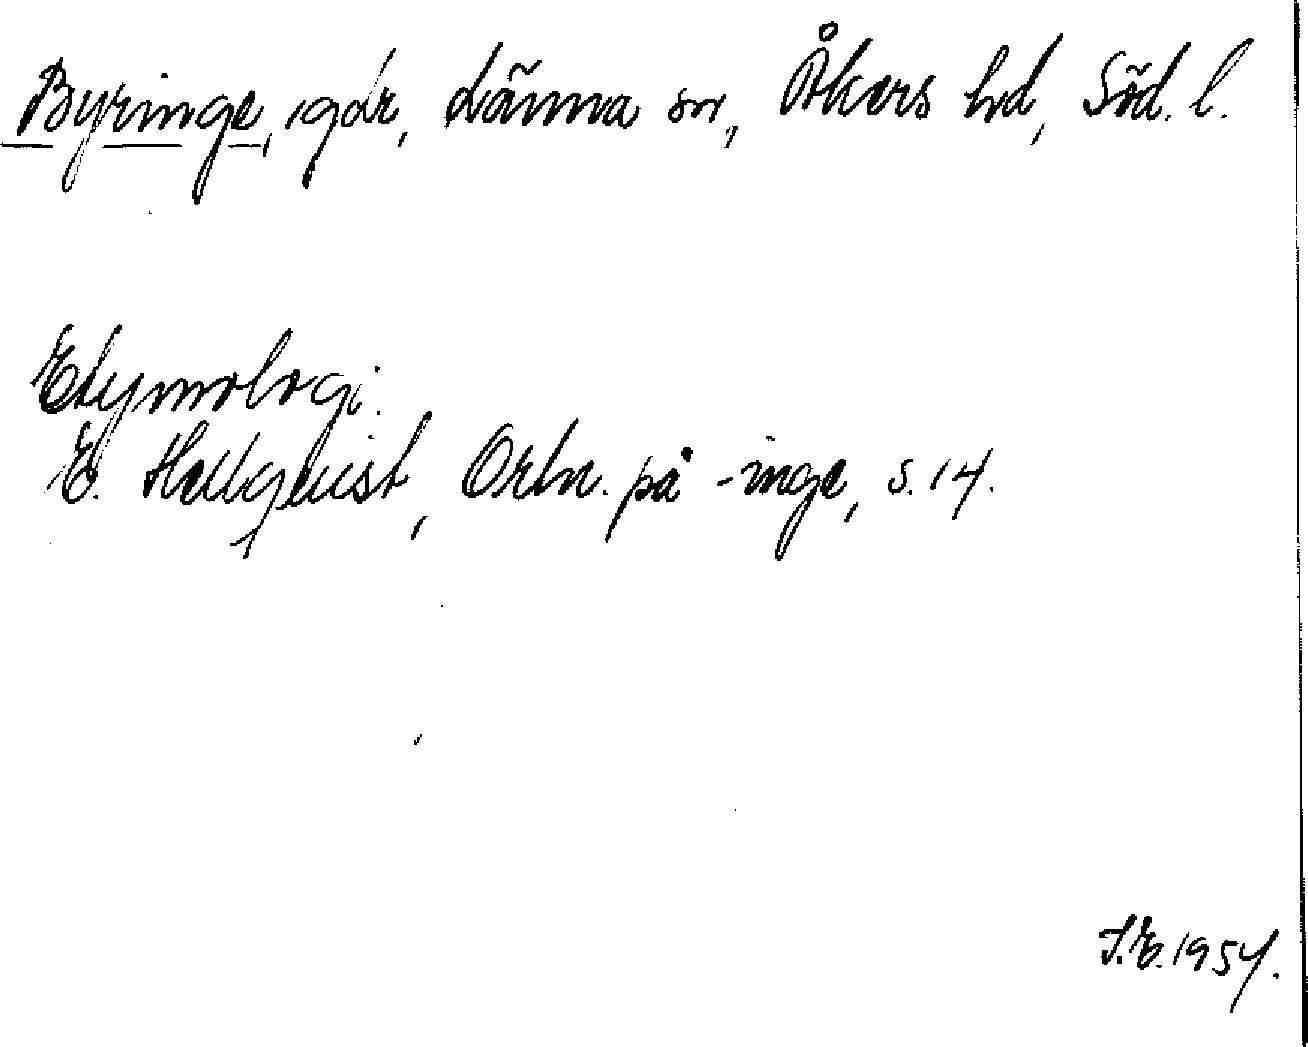 Byringe, gdr, Länna sn, Åkers hd, Söd. l.
Etymologi.
E. Hellquist, Ortn. på -inge, s. 14.
S.E. 1954.